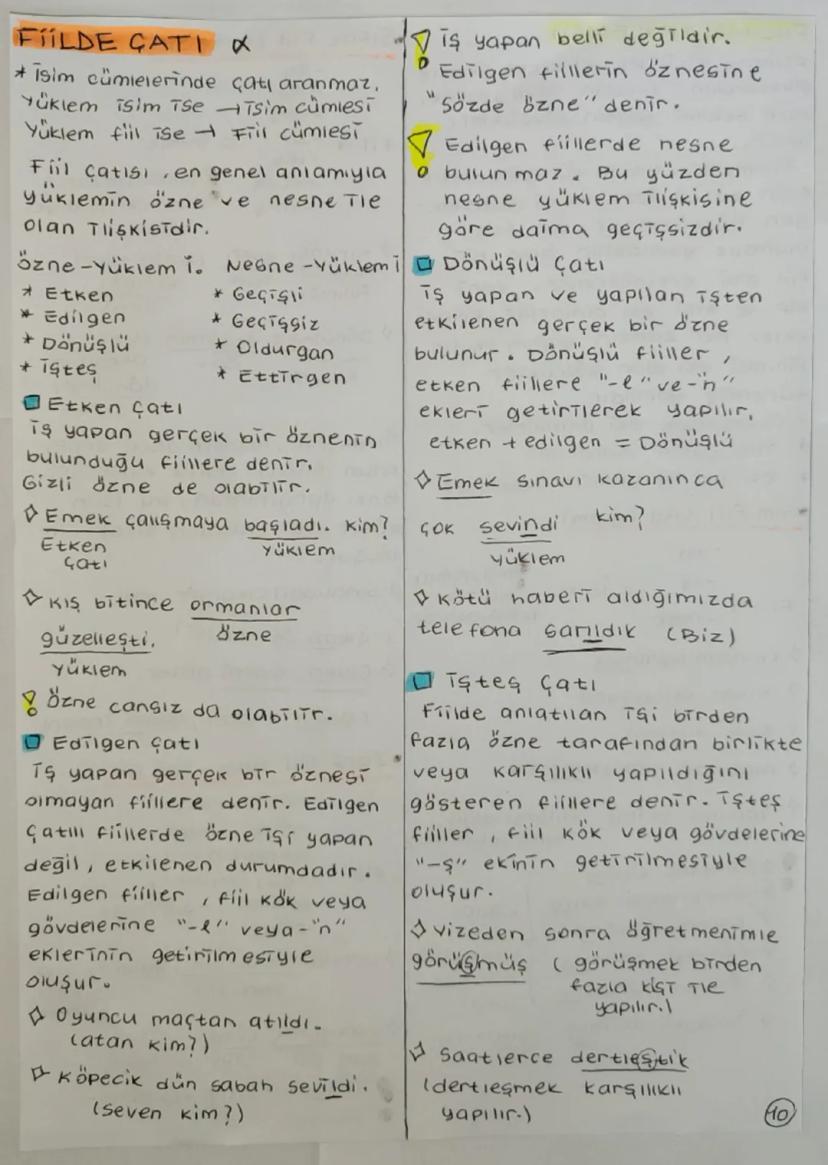 FİİLDE ÇATI α
* İsim cümlelerinde çatı aranmaz.
Yüklem isim ise → isim cümlesi
Yüklem fiil ise → Fiil cümlesi
Fiil çatısı, en genel anlamıyla
yüklemin özne ve nesne ile
olan ilişkisidir.
Özne-Yüklem İ. Nesne-Yüklem İ
* Etken * Geçişli
* Edilgen * Geçişsiz
* Dönüşlü * Oldurgan
* İşteş * Ettirgen
Etken Çatı
İş yapan gerçek bir öznenin
bulunduğu fiillere denir.
Gizli özne de olabilir.
Emek çalışmaya başladı. Kim?
Etken yüklem
Çatı
Kış bitince ormanlar
güzelleşti. özne
yüklem
! Özne cansız da olabilir.
Edilgen Çatı
İş yapan gerçek bir öznesi
olmayan fiillere denir. Edilgen
Çatılı fiillerde özne işi yapan
değil, etkilenen durumdadır.
Edilgen fiiller, fiil kök veya
gövdelerine "-l" veya -"n"
eklerinin getirilmesiyle
oluşur.
Oyuncu maçtan atıldı.
(atan kim?)
Köpecik dün sabah sevildi.
(seven kim?)
! İş yapan belli değildir.
Edilgen fiillerin öznesine
"Sözde özne" denir.
! Edilgen fiillerde nesne
bulunmaz. Bu yüzden
nesne yüklem ilişkisine
göre daima geçişsizdir.
Dönüşlü Çatı
İş yapan ve yapılan işten
etkilenen gerçek bir özne
bulunur. Dönüşlü fiiller,
etken fiillere "-l" ve -"n"
ekleri getirilerek yapılır.
etken + edilgen = Dönüşlü
Emek sınavı kazanınca
çok sevindi kim?
yüklem
Kötü haberi aldığımızda
telefona sarıldık (Biz)
İşteş Çatı
Fiilde anlatılan işi birden
fazla özne tarafından birlikte
veya karşılıklı yapıldığını
gösteren fiillere denir. İşteş
fiiller, fiil kök veya gövdelerine
"-ş" ekinin getirilmesiyle
oluşur.
Vizeden sonra öğretmenimle
görüşmüş (görüşmek birden
fazla kişi ile
yapılır.)
Saatlerce dertleştik
(dertleşmek karşılıklı
yapılır.)
10